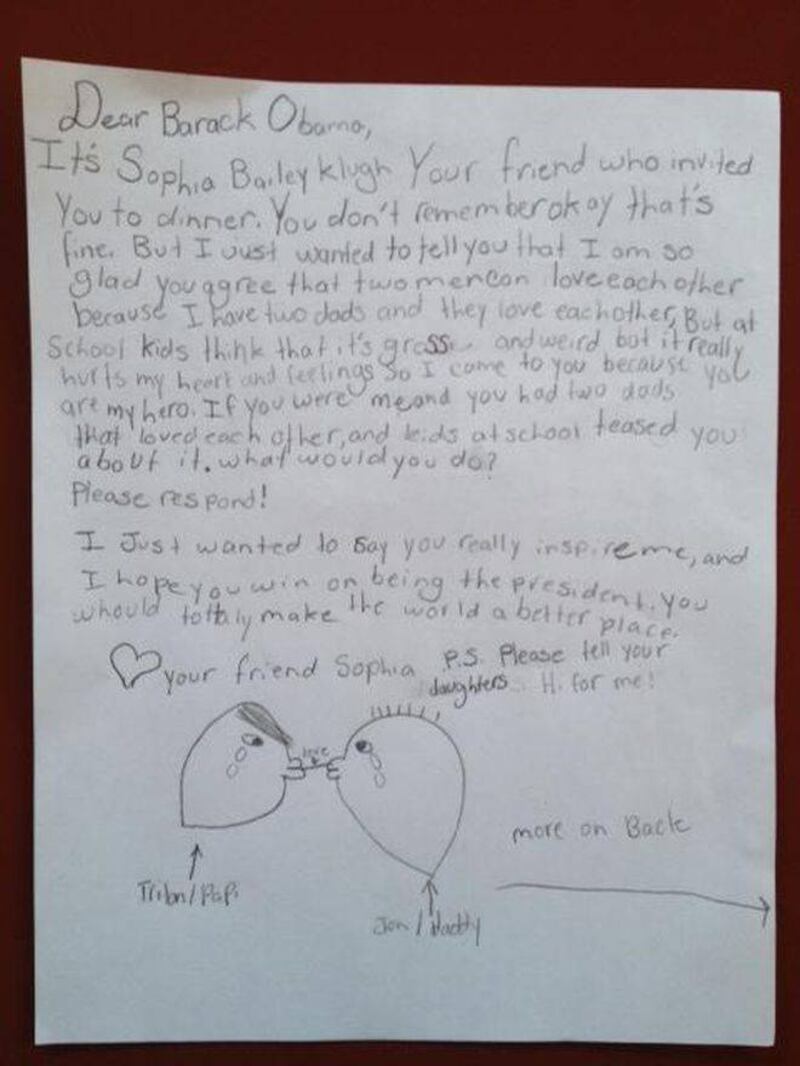 Dear Barack Obama,
It's Sophia Bailey Klugh Your friend who invited
You to dinner. You don't remember okay that's
fine. But I Just wanted to tell you that I am so
glad you agree that two men can love each other
because I have two dads and they love each other, But at
School kids think that it's gross and weird but it really
hurts my heart and feelings So I come to you because you
are my hero. If you were me and you had two dads
that loved each other, and kids at school teased you
about it. what would you do?
Please respond!
I Just wanted to say you really inspire me, and
I hope you win on being the president. You
whould totaly make the world a better place.
your friend Sophia
P.S. Please tell your
daughters Hi for me!
love
more on Back
/Papi
Jon/Daddy